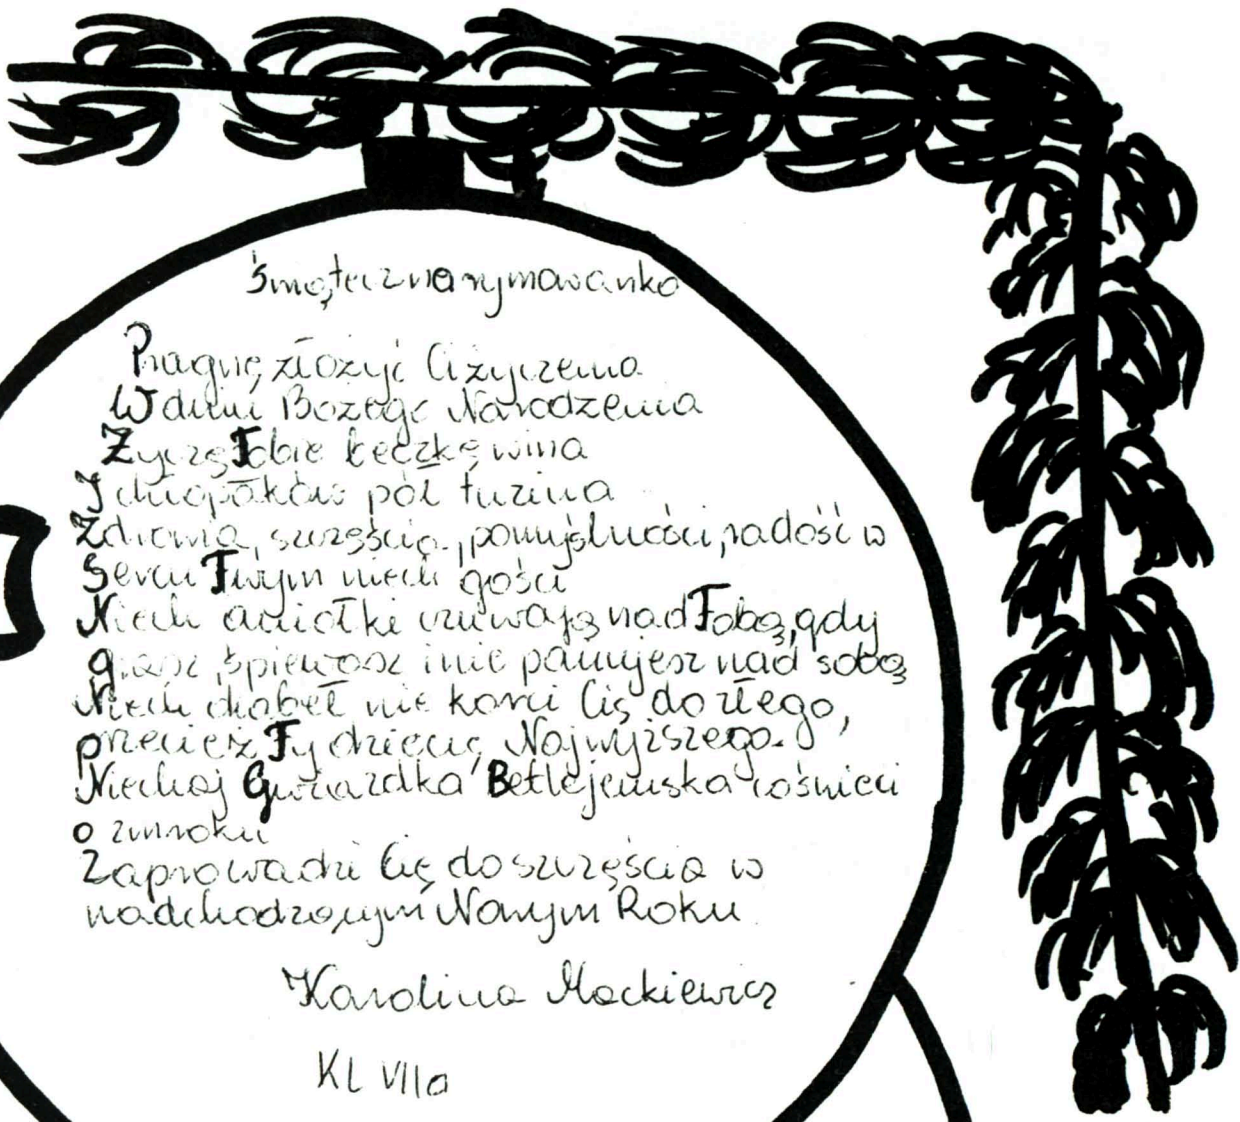 Świąteczna rymowanka
Pragnę złożyć Ci życzenia
W dniu Bożego Narodzenia
Życzę Tobie beczkę wina
I chłopaków pół tuzina
Zdrowia, szczęścia, pomyślności, radość w
Sercu Twym niech gości
Niech aniołki czuwają nad Tobą, gdy
grasz, śpiewasz i nie panujesz nad sobą
Niech diabeł nie korci Cię do złego,
przecież Ty dziecię Najwyższego.
Niechaj Gwiazdka Betlejemska coświeci
o zmroku
Zaprowadzi Cię do szczęścia w
nadchodzącym Nowym Roku
Karolina Mackiewicz
KL VIIa